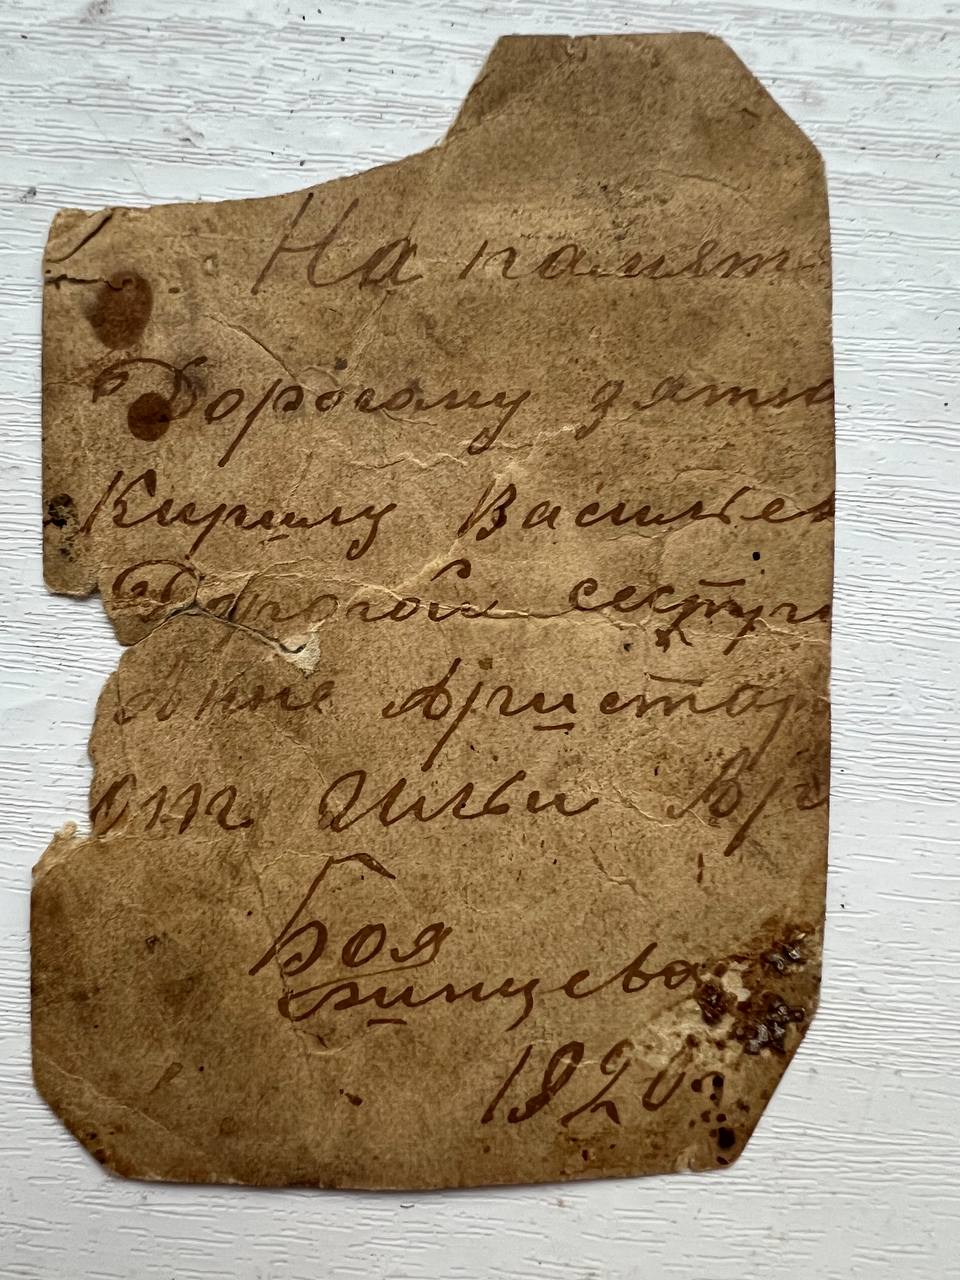 На памят
Дорогому зятю
Кирилу Васильев
Дорогой сестри
Анне Аристар
от Ильи Ар
Боя
ринцева
192